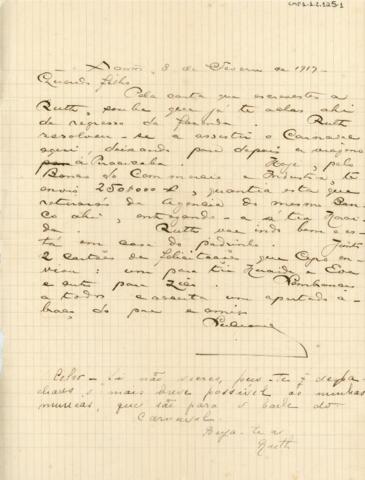 8 de Fevereiro de 1917.
Querido filho
Pela carta que escreveste a
Ruth, soube que já te achas ahi
de regresso da fazenda. Ruth
resolveu-se a assistir o Carnaval
aqui, deixando para depois a viagem
a Piracicaba. Hoje, pelo
Banco do Commercio e Industria, te
envio 250$000, quantia esta que
retirarás da Agencia do mesmo Ban-
co ahi, entregando-a a tia
Ruth vae indo bem e es-
tá em casa do padrinho. Junto
2 cartões de felicitações que
viou: um para tia e Eva
e outo para Lembranças
a todos e acceita um apertado a-
braço do pae e amigo

não te
o mais breve possivel as minhas
musicas, que são para o baile do
Carnaval.
Beija-te a
Ruth